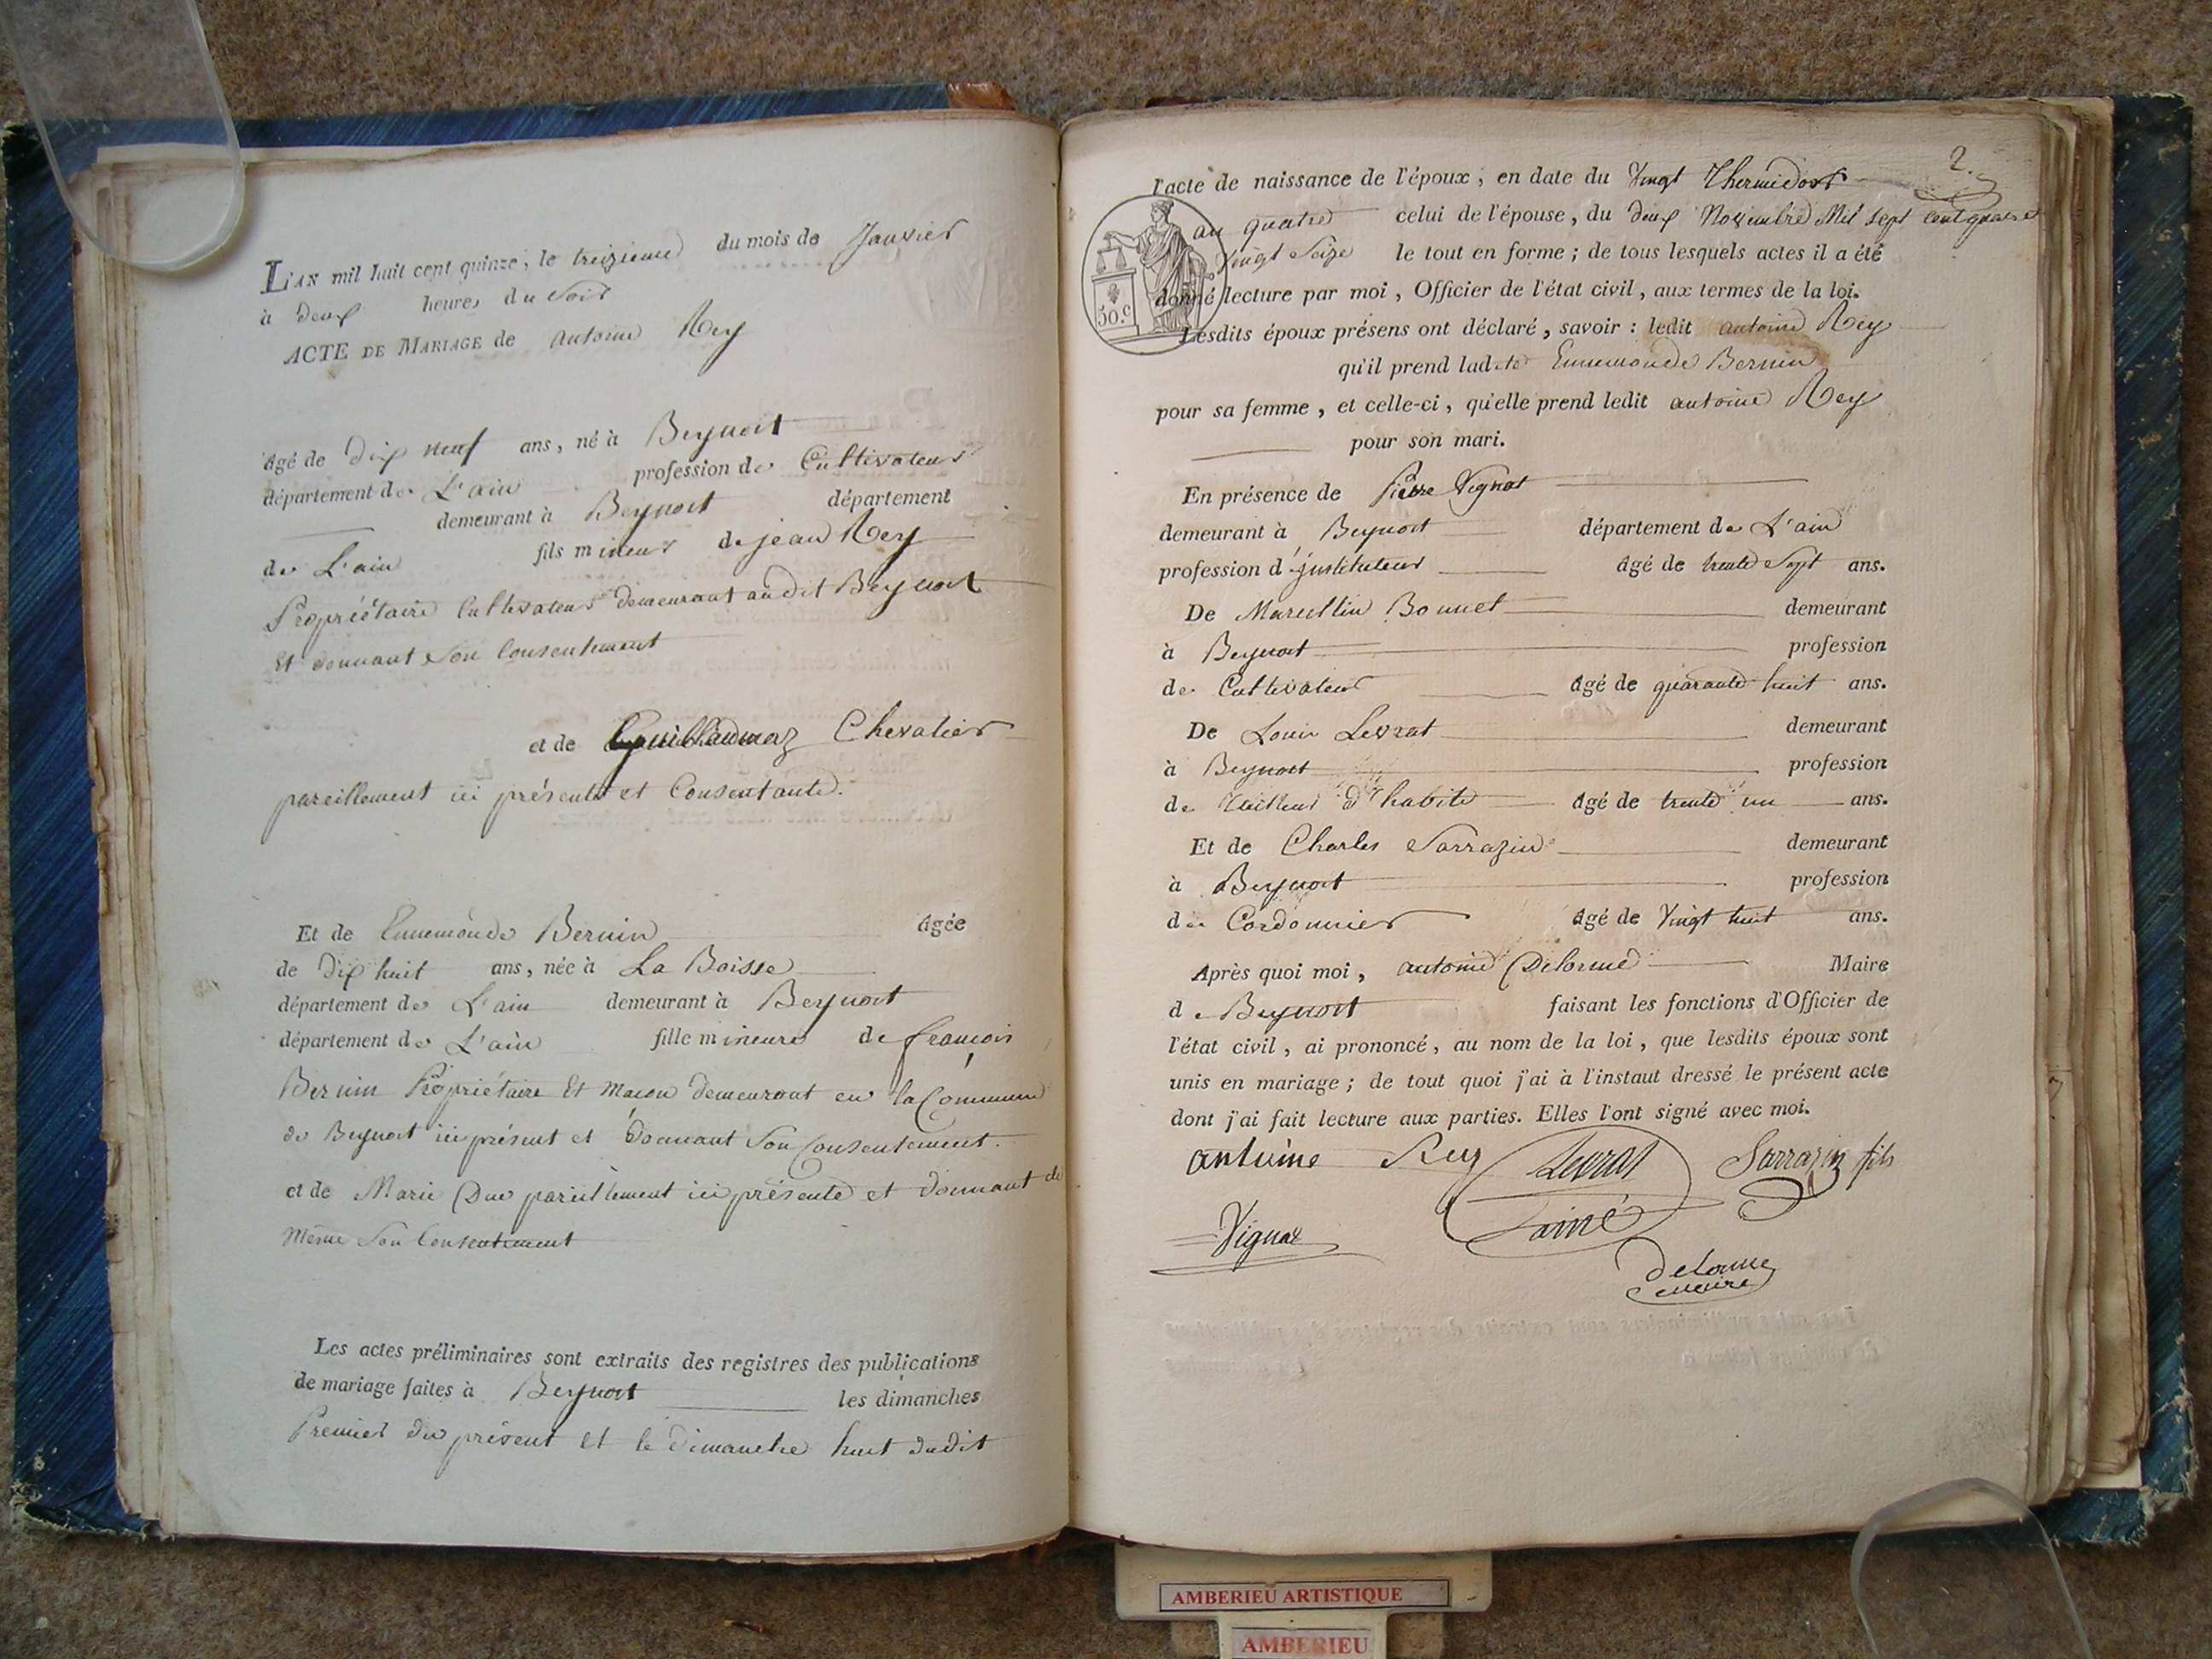 L'AN mil huit cent quinze, le treizieme du mois de Janvier
à deux heures du Soir
ACTE DE MARIAGE de antoine Rey
âgé de dix neuf ans, né à Beynost
département de L'ain profession de Cultivateur
demeurant à Beynost département
de L'ain fils mineur de jean Rey
Propriétaire Cultivateur demeurant audit Beynost
Et donnant Son Consentement
et de Chevalier
pareillement ici présente et Consentante.
Et de Ennemonde Bernin âgée
de dix huit ans, née à La Boisse
département de L'ain demeurant à Beynost
département de L'ain fille mineure de françois
Bernin Propriétaire Et Macon demeurant en la Commune
de Beynost ici présent et donnant Son Consentement.
et de Marie Duc pareillement ici présente et donnant de
même Son Consentement
Les actes préliminaires sont extraits des registres des publications
de mariage faites à Beynost les dimanches
Premier du présent et le dimanche huit dudit
2.
l'acte de naissance de l'époux, en date du Vingt Thermidor
an quatre celui de l'épouse, du deux Novembre Mil Sept Cent quatre
Vingt Seize le tout en forme ; de tous lesquels actes il a été
donné lecture par moi, Officier de l'état civil, aux termes de la loi.
50.c
Lesdits époux présens ont déclaré, savoir : ledit antoine Rey
qu'il prend ladite Ennemonde Bernin
pour sa femme, et celle-ci, qu'elle prend ledit antoine Rey
pour son mari.
En présence de Pierre Vignat
demeurant à Beynost département de L'ain
profession d'justituteur âgé de trente Sept ans.
De Marcellin Bonnet demeurant
à Beynost profession
de Cultivateur âgé de quarante huit ans.
De Louis Levrat demeurant
à Beynost profession
de tailleur d'habits âgé de trente un ans.
Et de Charles Sarrazin demeurant
à Beynost profession
de Cordonnier âgé de Vingt huit ans.
Après quoi moi, antoine Delorme Maire
de Beynost faisant les fonctions d'Officier de
l'état civil, ai prononcé, au nom de la loi, que lesdits époux sont
unis en mariage ; de tout quoi j'ai à l'instaut dressé le présent acte
dont j'ai fait lecture aux parties. Elles l'ont signé avec moi.
antoine Rey Levrat Sarrazin fils
Vignat l'ainé
delorme
maire
AMBERIEU ARTISTIQUE
AMBERIEU